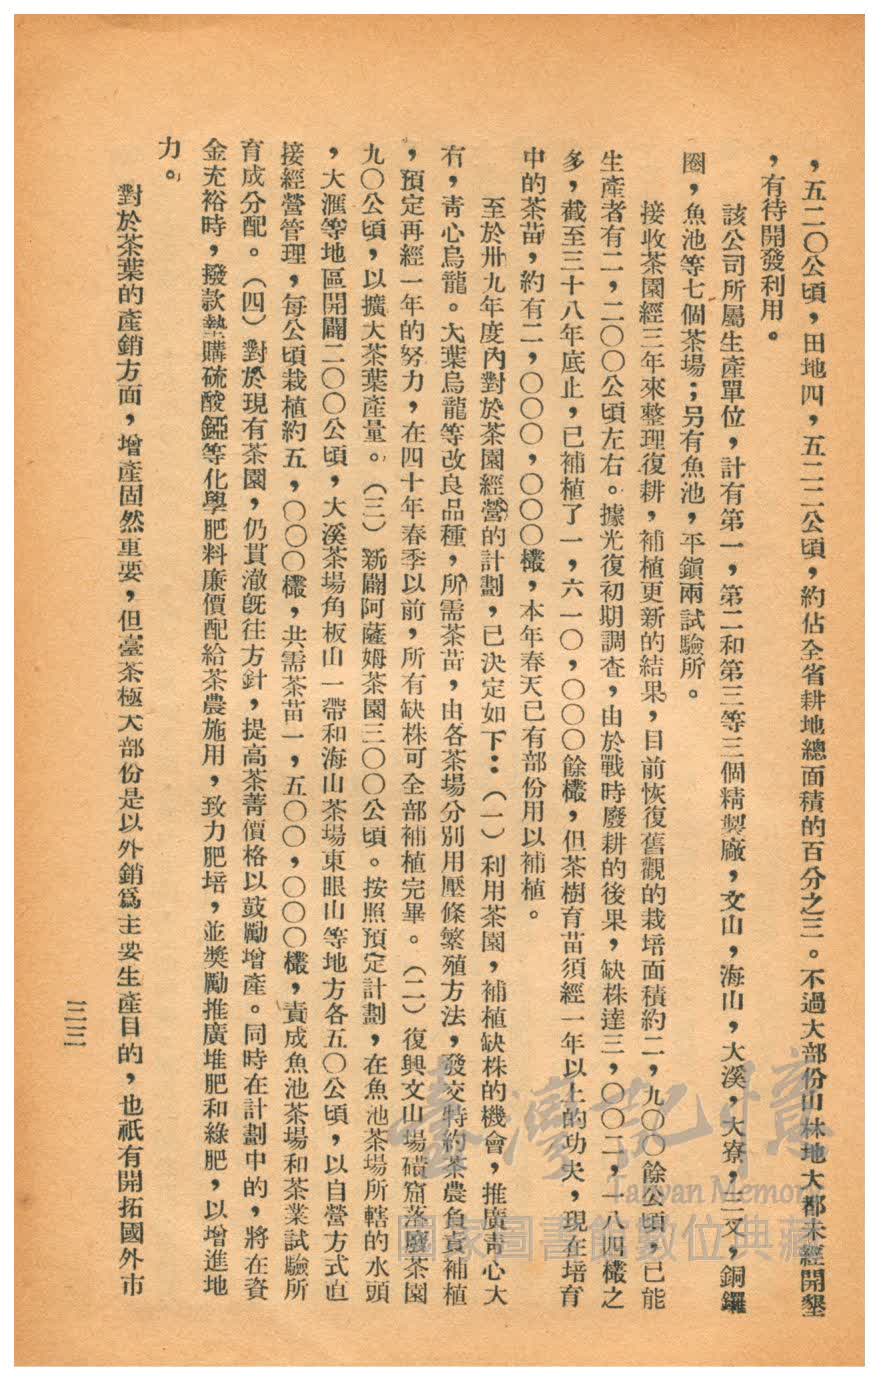 ，五二〇公頃，田地四，五二二公頃，約佔全省耕地總面積的百分之三。不過大部份山林地大都未經開墾
，有待開發利用。
該公司所屬生產單位，計有第一，第二和第三等三個精製廠，文山，海山，大溪，大寮，三叉，銅鑼
圈，魚池等七個茶場；另有魚池，平鎮兩試驗所。
接收茶園經三年來整理復耕，補植更新的結果，目前恢復舊觀的栽培面積約二，九〇〇餘公頃，已能
生產者有二，二〇〇公頃左右。據光復初期調查，由於戰時廢耕的後果，缺株達三，〇〇二，一八四欉之
多，截至三十八年底止，已補植了一，六一〇，〇〇〇餘欉，但茶樹育苗須經一年以上的功夫，現在培育
中的茶苗，約有二，〇〇〇，〇〇〇欉，本年春天已有部份用以補植。
至於卅九年度內對於茶園經營的計劃，已決定如下：（一）利用茶園，補植缺株的機會，推廣青心大
冇，青心烏龍。大葉烏龍等改良品種，所需茶苗，由各茶場分別用壓條繁殖方法，發交特約茶農負責補植
，預定再經一年的努力，在四十年春季以前，所有缺株可全部補植完畢。（二）復興文山場碏窟落廢茶園
九〇公頃，以擴大茶葉產量。（三）新闢阿薩姆茶園三〇〇公頃。按照預定計劃，在魚池茶場所轄的水頭
，大滙等地區開闢二〇〇公頃，大溪茶場角板山一帶和海山茶場東眼山等地方各五〇公頃，以自營方式直
接經營管理，每公頃栽植約五，〇〇〇欉，共需茶苗一，五〇〇，〇〇〇欉，責成魚池茶場和茶業試驗所
育成分配。（四）對於現有茶園，仍貫澈旣往方針，提高茶菁價格以鼓勵增產。同時在計劃中的，將在資
金充裕時，撥款墊購硫酸錏等化學肥料廉價配給茶農施用，致力肥培，並獎勵推廣堆肥和綠肥，以增進地
力。
對於茶葉的產銷方面，增產固然重要，但臺茶極大部份是以外銷爲主要生產目的，也祇有開拓國外市
三三
臺灣記憶
Taiwan Memory
國家圖書館數位典藏